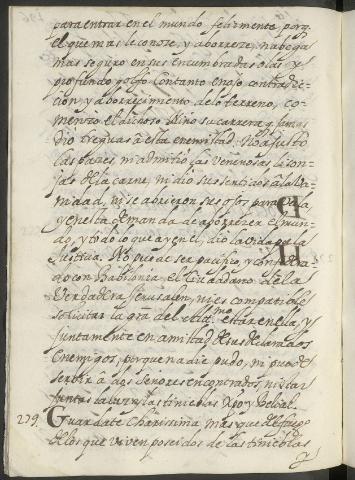 para entrar en el mundo felizmente, porq.
el que mas le conoze, y aborreze, nabega
mas seguro en sus encumbradas olas, y
profundo golfo. Con tanto enojo contradic-
cion, y aborrecimento, de lo terreno, co-
menzo el dichoso Niño su carrera, y jamas
dio treguas a esta enemistad. No ajusto
las pazes, ni admitio las venenosas lison-
jas de la carne, ni dio sus sentidos a la Va-
nidad, ni se abrieron sus ojos para verla
y en esta demanda de aborrezer el mun-
do, y todo lo que ay en el, dio la vida por la
Justicia. No puede ser pacifico, y confedera-
do con Babilonia el Ciudadano de la
Verdadera Jerusalen, ni es compatible
solicitar la gra. del Altmo. estar en ella, y
juntamente en amistad de sus declarados
enemigos, porque nadie pudo, ni puede
servir a dos Señores encontrados, ni estar
juntas la luz y las tinieblas Xpo y Belial.
279. Guardate Charissima mas que del fuego
de los que viven poseidos de las tinieblas
y